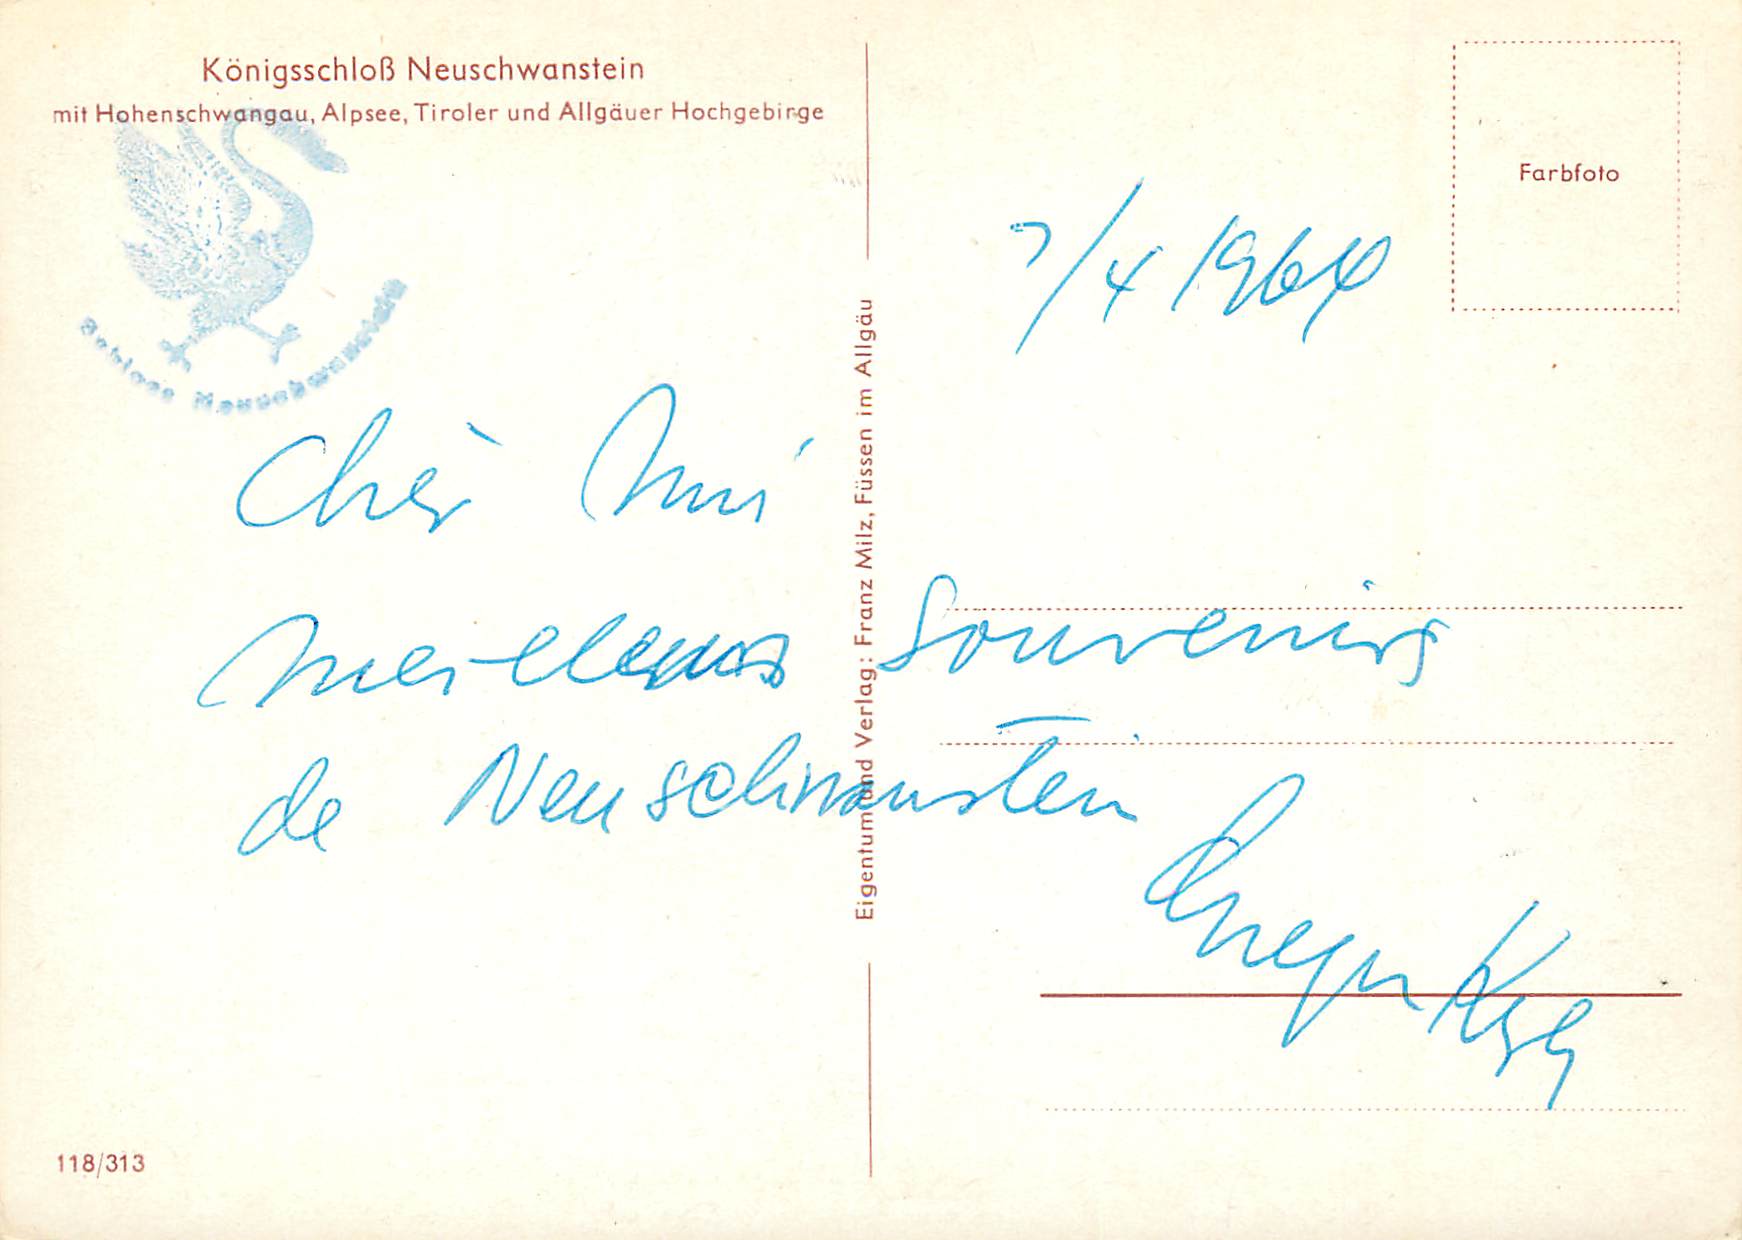 Königsschloß Neuschwanstein
mit Hohenschwangau, Alpsee, Tiroler und Allgäuer Hochgebirge
Schloss Neuschwanstein
Farbfoto
7/4 1964
Chèr
meilleurs souvenirs
de Neuschwanstein
Eigentum und Verlag: Franz Milz, Füssen im Allgäu
118/313